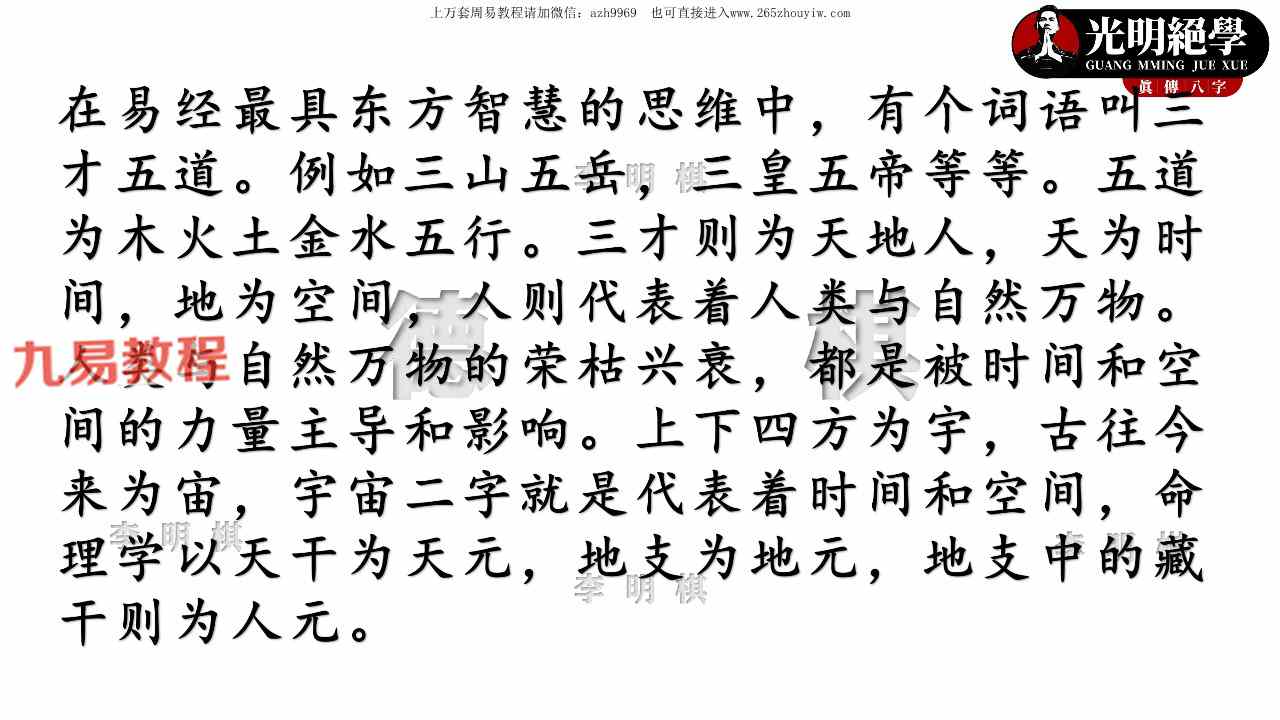 上万套周易教程请加微信：azh9969 也可直接进入www.265zhouyiw.com
光明絕學
GUANG MMING JUE XUE
眞傳八字
在易经最具东方智慧的思维中，有个词语叫三
才五道。例如三山五岳，三皇五帝等等。五道
为木火土金水五行。三才则为天地人，天为时
间，地为空间，人则代表着人类与自然万物。
人类与自然万物的荣枯兴衰，都是被时间和空
间的力量主导和影响。上下四方为宇，古往今
来为宙，宇宙二字就是代表着时间和空间，命
理学以天干为天元，地支为地元，地支中的藏
干则为人元。
李明棋
德棋
九易教程
李明棋
李明棋
李明棋